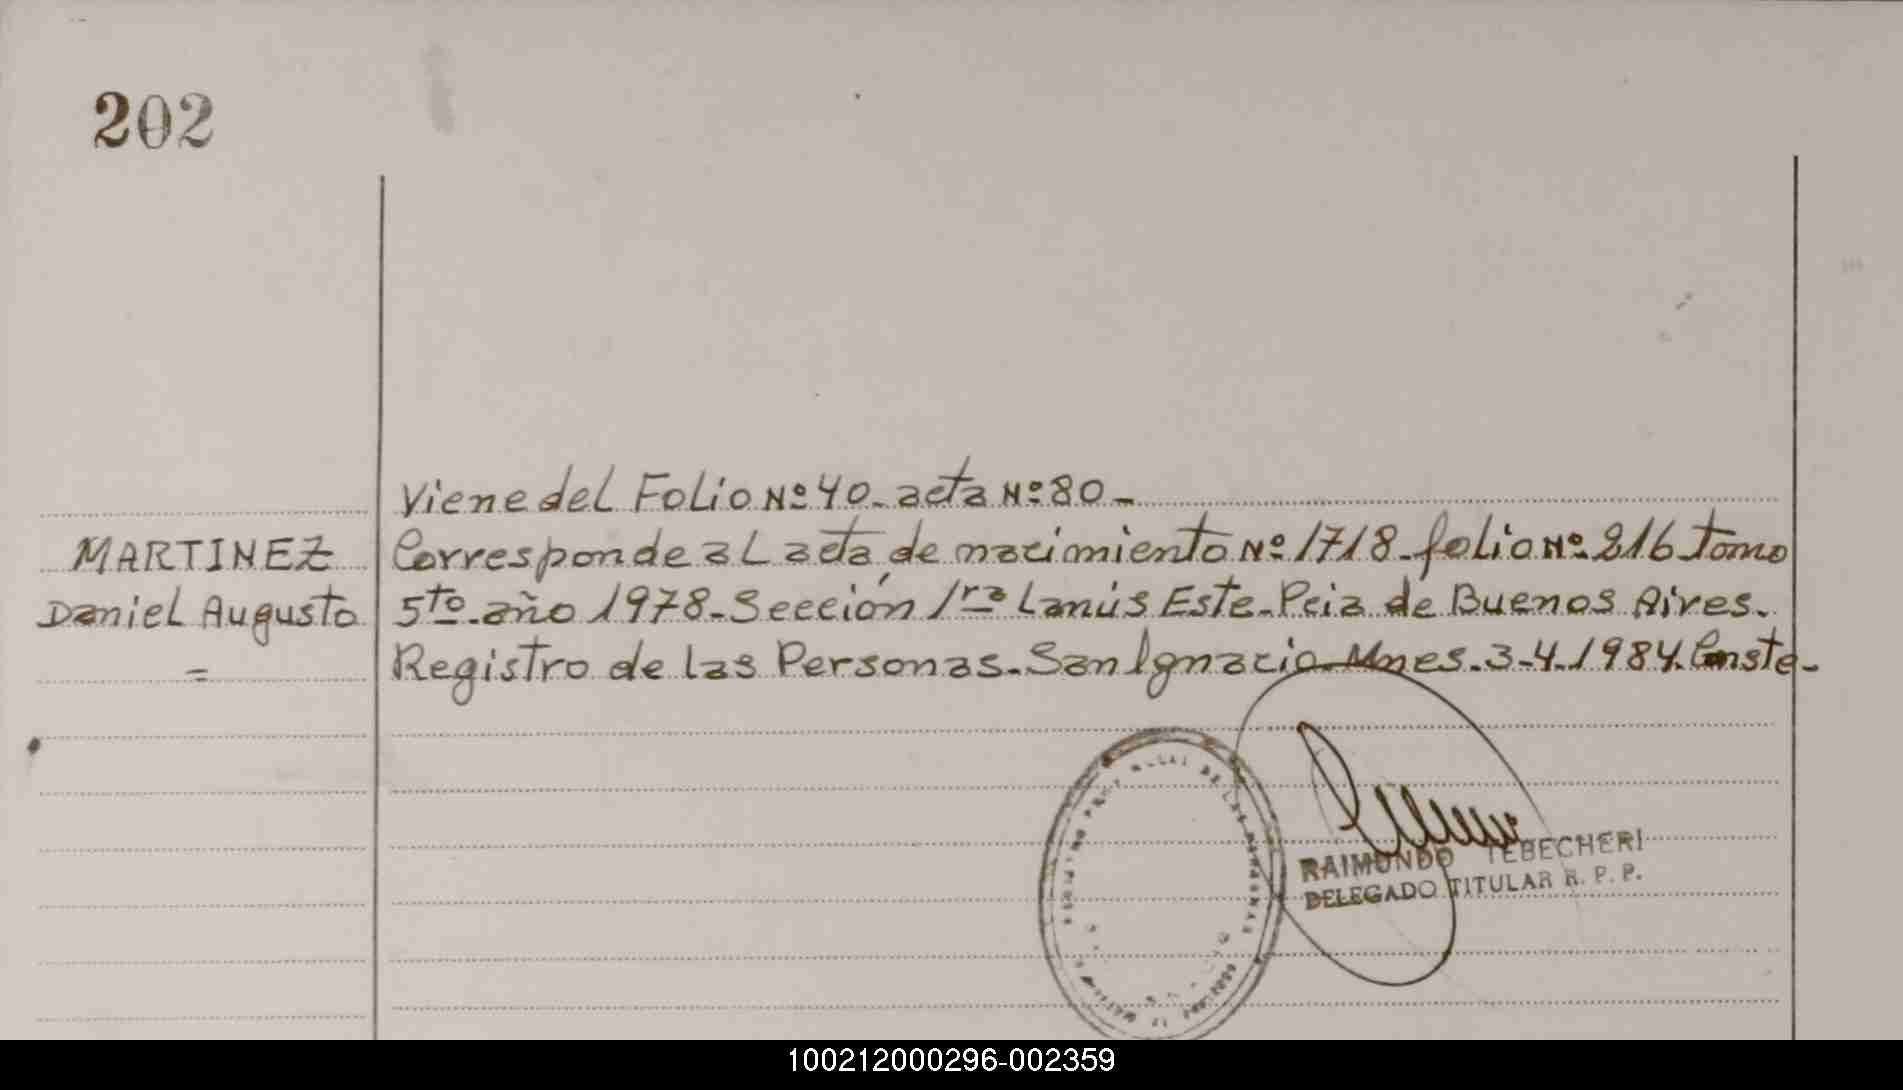 202
Viene del Folio Nº 40. acta Nº 80 -
MARTINEZ
Daniel Augusto
=
Corresponde al acta, de nacimiento Nº 1718. folio Nº 216 tomo
5to. año 1978. Sección 1ra Lanús Este. Pcia de Buenos Aires.
Registro de las Personas. San Ignacio Mnes. 3-4-1984. Conste-
DE LAS PERSONAS
RAIMUNDO TEBECHERI
DELEGADO TITULAR R. P. P.
100212000296-002359